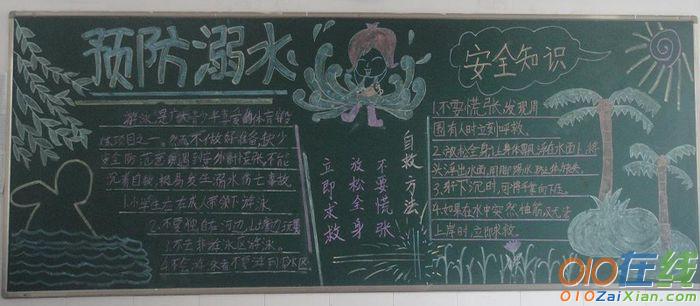 预防溺水
游泳是广大青少年喜爱的体育锻
炼项目之一。然而不做好准备、缺少
安全防范意识，遇到意外时慌张、不能
沉着自救，极易发生溺水伤亡事故。
1.小学生应在成人带领下游泳。
2.不要独自在河边、山塘边玩耍
3.不去非游泳区游泳。
4.不会游泳者不要游到深水区
自救方法
不要慌张
放松全身
立即求救
安全知识
1.不要慌张,发现周
围有人时立刻呼救。
2.放松全身,让身体漂浮在水面上,将
头浮出水面,用脚踢水
3.身体下沉时,可将手掌向下压。
4.如果在水中突然抽筋,又无法
上岸时,立即求救。
010在线
010ZaiXian.com